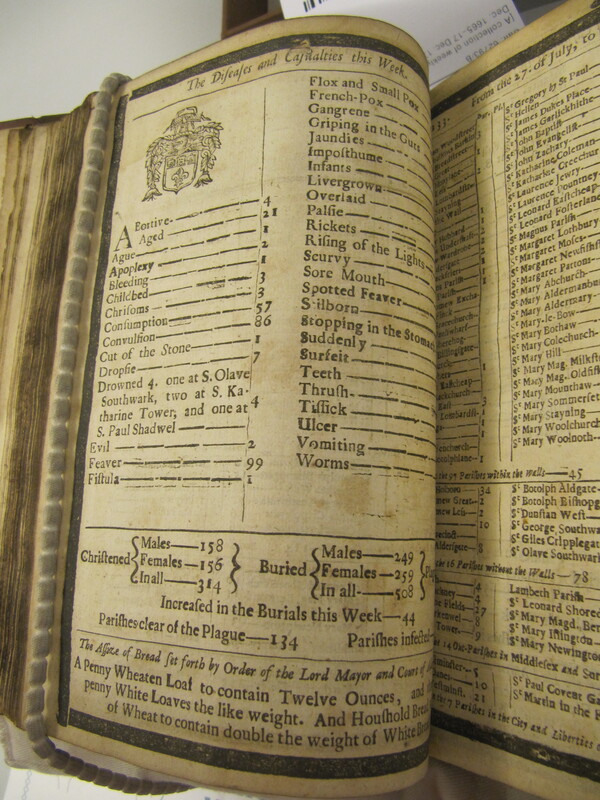 The Diſeaſes and Caſualties this Week.
Abortive 4
Aged 21
Ague 1
Apoplexy 2
Bleeding 1
Childbed 3
Chriſoms 3
Conſumption 57
Convulſion 86
Cut of the Stone 1
Dropſie 7
Drowned 4. one at S. Olave
Southwark, two at S. Ka-
tharine Tower, and one at 4
S. Paul Shadwel
Evil 2
Feaver 99
Fiſtula 1
Flox and Small Pox
French-Pox
Gangrene
Griping in the Guts
Jaundies
Impoſthume
Infants
Livergrown
Overlaid
Palſie
Rickets
Riſing of the Lights
Scurvy
Sore Mouth
Spotted Feaver
Stilborn
Stopping in the Stomach
Suddenly
Surfeit
Teeth
Thruſh
Tiſſick
Ulcer
Vomiting
Worms
Chriſtened { Males—158 Females—156 In all—314 }
Buried { Males—249 Females—259 In all—508 }
Increaſed in the Burials this Week—44
Pariſhes clear of the Plague—134 Pariſhes infected
The Aſſize of Bread ſet forth by Order of the Lord Mayor and Court of
A Penny Wheaten Loaf to contain Twelve Ounces, and
penny White Loaves the like weight. And Houſhold Bread
of Wheat to contain double the weight of White
From the 27. of July, to
St Gregory by St Paul
St Hellen
St James Dukes Place
St James Garlickhithe
St John Baptiſt
St John Evangeliſt
St John Zachary
St Katharine Coleman
St Katharine Creechurch
St Laurence Jewry
St Laurence Pountney
St Leonard Eaſtcheap
St Leonard Foſterlane
St Magnus Pariſh
St Margaret Lothbury
St Margaret Moſes
St Margaret Newfiſhſt
St Margaret Pattons
St Mary Abchurch
St Mary Aldermanbury
St Mary Aldermary
St Mary-le-Bow
St Mary Bothaw
St Mary Colechurch
St Mary Hill
St Mary Mag. Milkſt
St Mary Mag. Oldfiſh
St Mary Mounthaw
St Mary Sommerſet
St Mary Stayning
St Mary Woolchurch
St Mary Woolnoth
97 Pariſhes within the Walls—45
St Botolph Aldgate
St Botolph Biſhopg
St Dunſtan Weſt
St George Southwa
St Giles Cripplegat
St Olave Southwark
the 16 Pariſhes without the Walls—78
Lambeth Pariſh
St Leonard Shored
St Mary Magd. Ber
St Mary Iſlington
St Mary Newington
Out-Pariſhes in Middleſex and Sur
St Paul Covent Ga
St Martin in the
Pariſhes in the City and Liberties